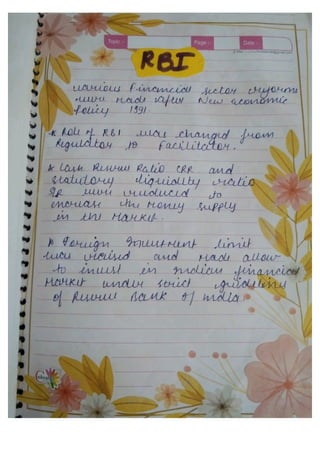 Topic :-
Page :-
Date :-
RBI
various Financial sector reforms
were made after New economic
Policy 1991.
* Role of RBI was changed from
Regulator to Facilitator.
* Cash Reserve Ratio CRR and
Statutory liquidity ratio
were reduced to
increase the money supply
in the market.
* Foreign Investment limit
was raised and made allow
to invest in indian financial
Market under strict guidelines
of Reserve Bank of india